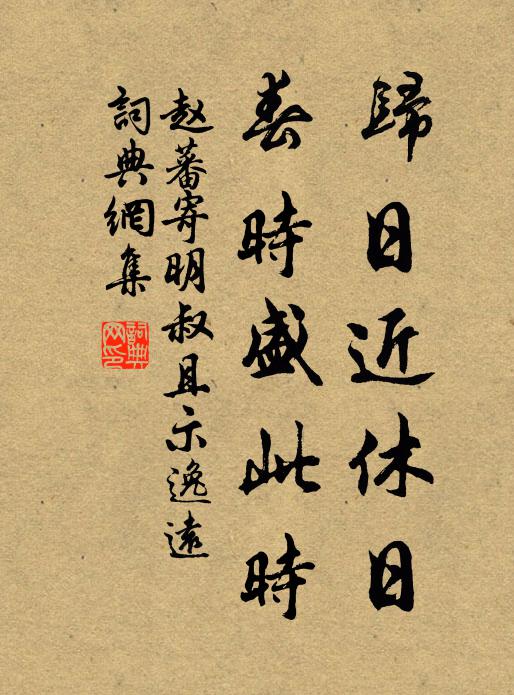 歸日近休日
春時盛此時
赵蕃寄明叔且示逸遠
詞典網集
詞典网印